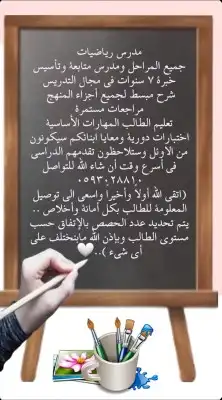 مدرس رياضيات
جميع المراحل ومدرس متابعة وتأسيس
خبرة ٧ سنوات فى مجال التدريس
شرح مبسط لجميع أجزاء المنهج
مراجعات مستمرة
تعليم الطالب المهارات الأساسية
اختبارات دورية ومعايا ابنائكم سيكونون
من الأوئل وستلاحظون تقدمهم الدراسى
فى أسرع وقت أن شاء الله للتواصل
(اتقى الله أولاً وأخيراً واسعى الى توصيل
المعلومة للطالب بكل أمانة وأخلاص ..
يتم تحديد عدد الحصص بالإتفاق حسب
مستوى الطالب وبإذن الله مابنختلف على
أى شىء )..